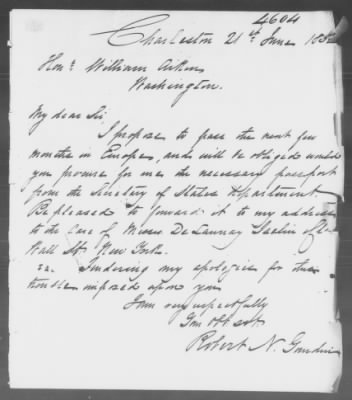 4604
Charleston 21st June 185
Hon: William Aiken
Washington.
My dear Sir,
I propose to pass the next few
months in Europe, and will be obliged would
you procure for me the necessary passport
from the Secretary of States Department
Be pleased to forward it to my address
to the care of Messrs De Launay
Wall St. New York.
Tendering my apologies for the
trouble imposed upon you
I am very respectfully
Robert N. Gourdin